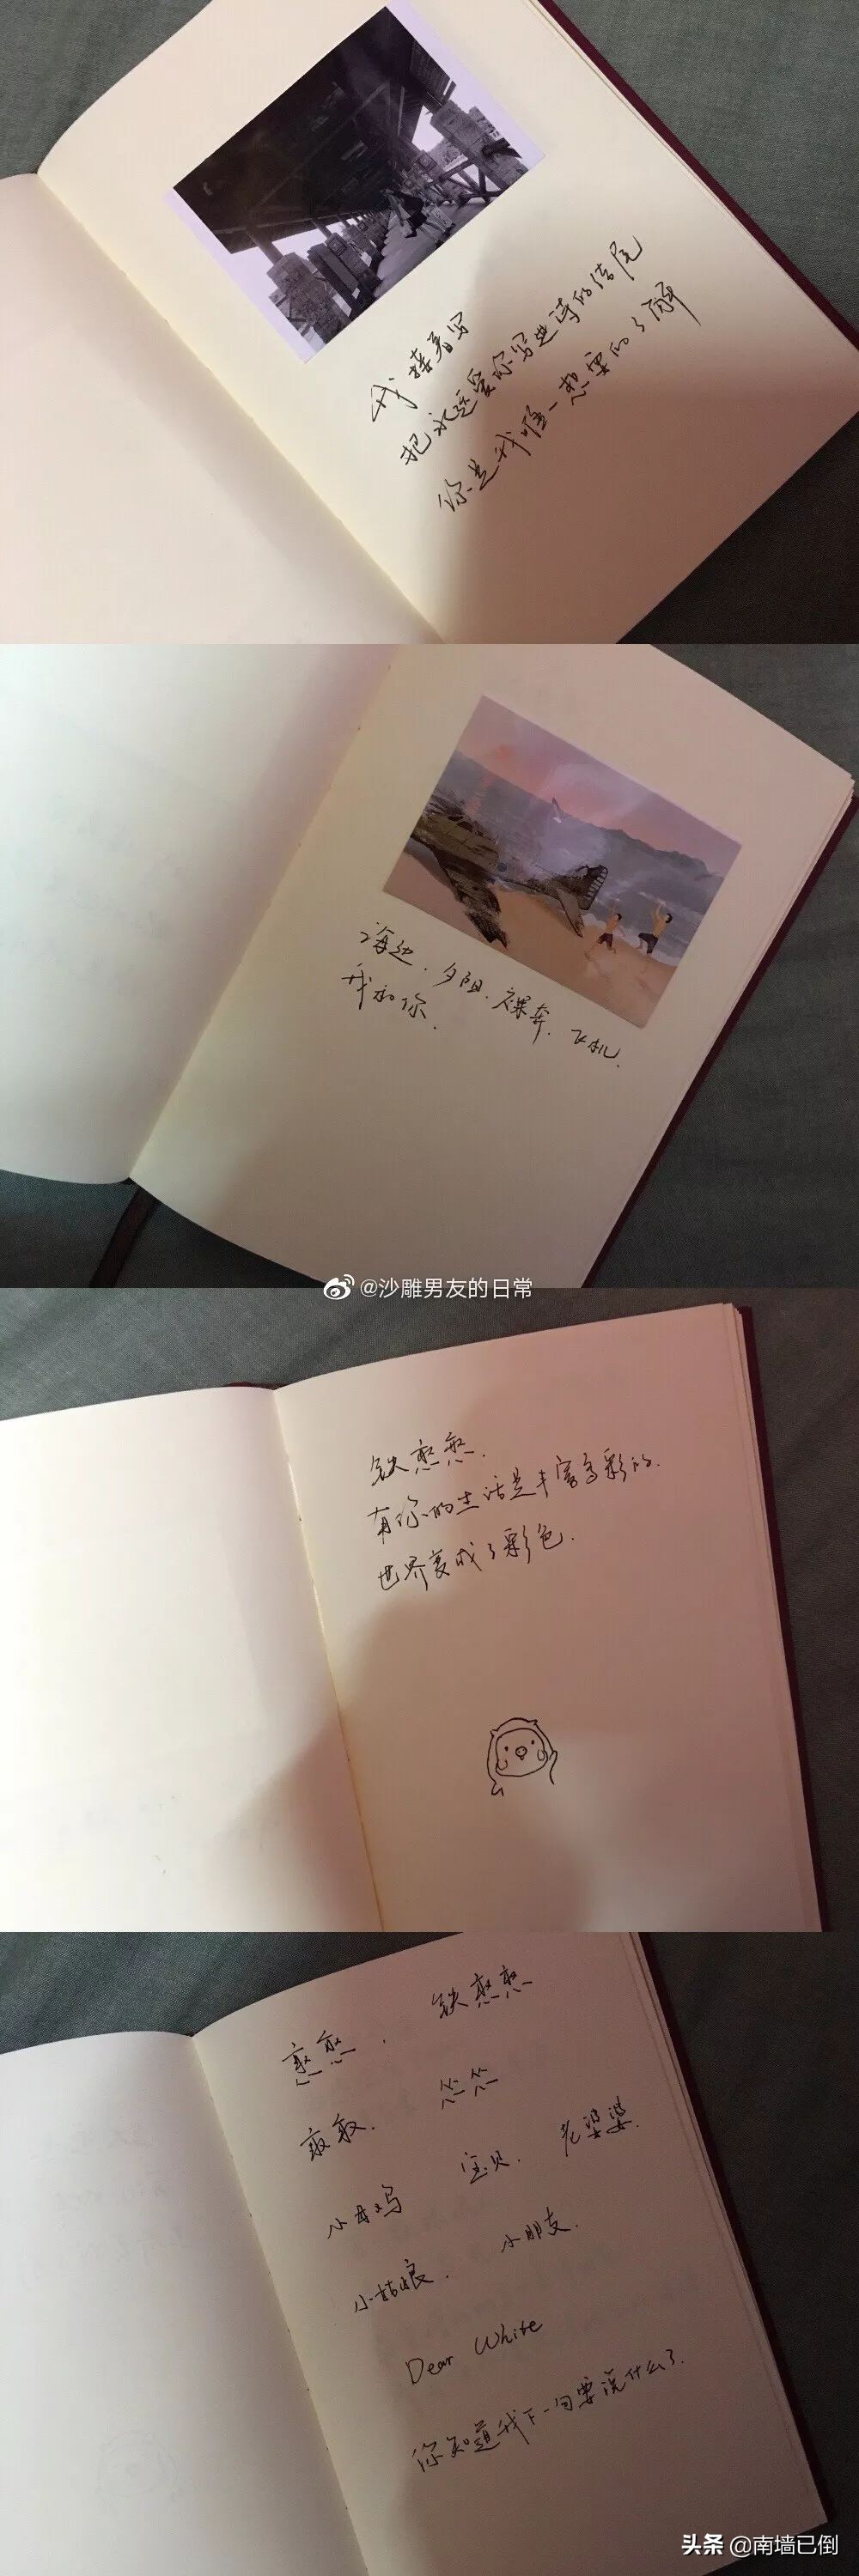 我接着写
把永远爱你写进诗的结尾
你是我唯一想要的了解
海边.夕阳.裸奔.飞机.
我和你.
@沙雕男友的日常
铁憨憨.
有你的生活是丰富多彩的.
世界变成了彩色.
憨憨, 铁憨憨
敢敢. 心心
小母鸡 宝贝. 老婆婆.
小姑娘. 小朋友.
Dear White
你知道我下一句要说什么了.
头条 @南墙已倒